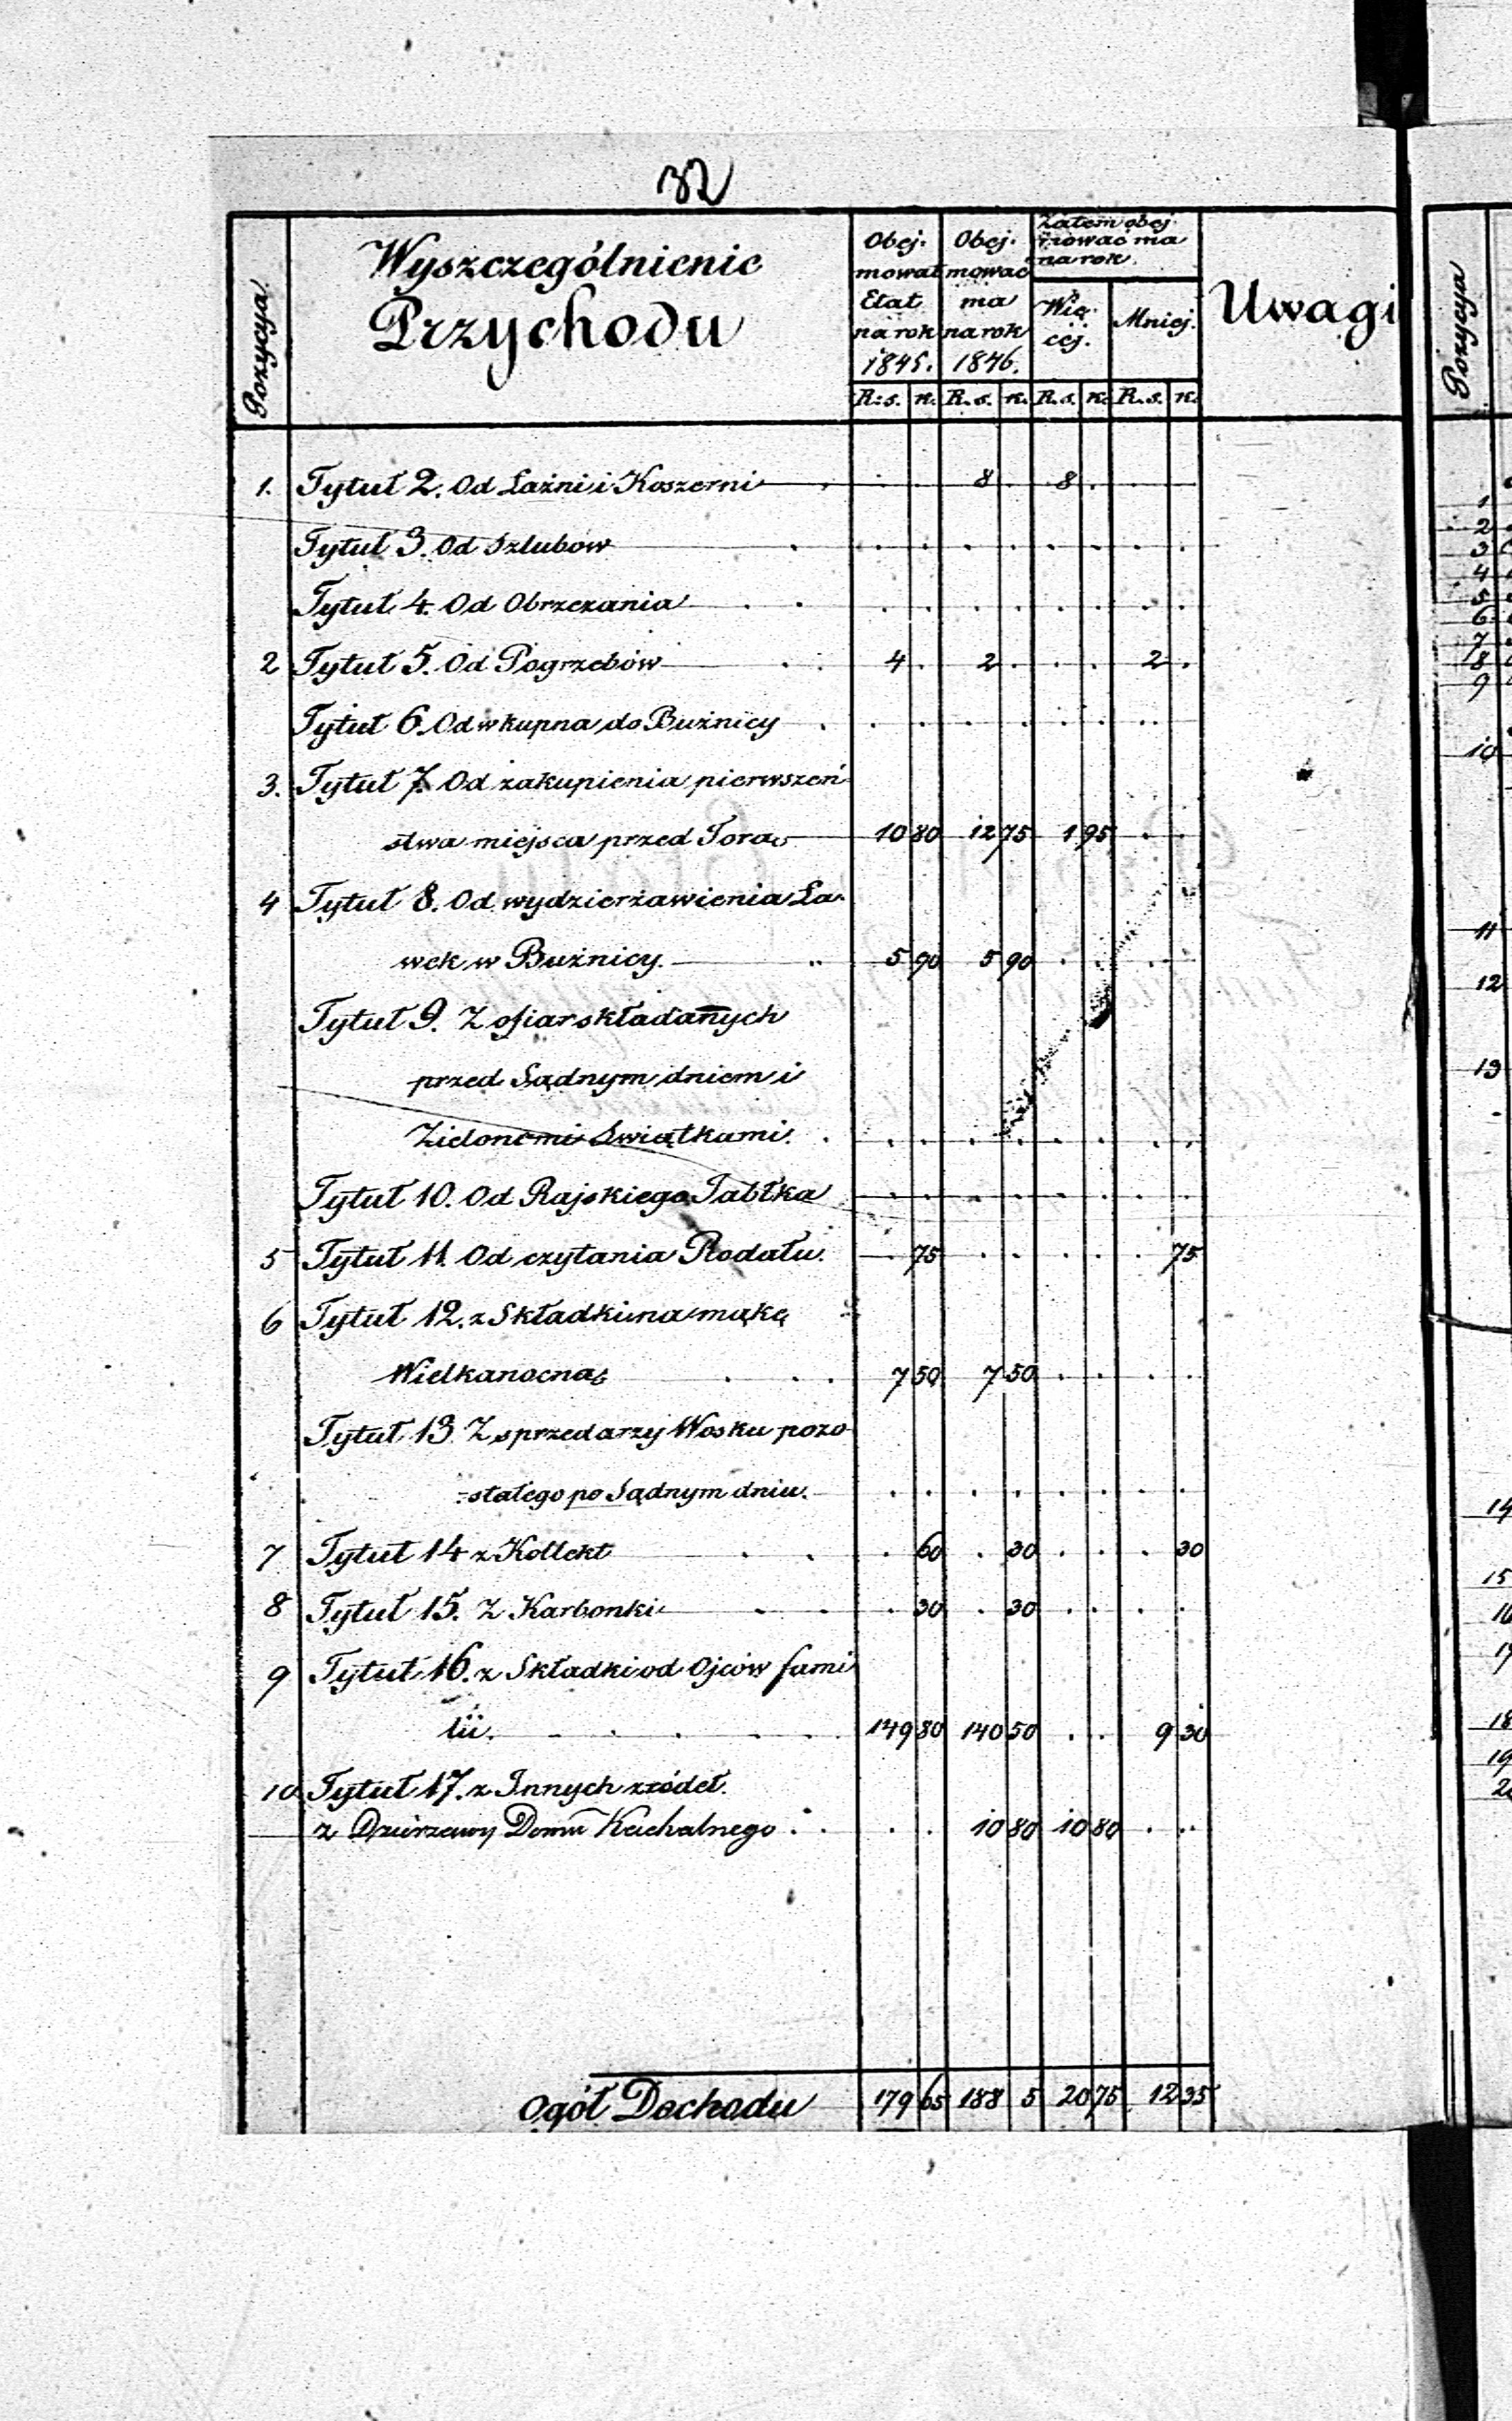 32
Pozycya
Wyszczególnienie
Przychodu
Obej-
mował
Etat
na rok
1845.
Obej-
mować
ma
na rok
1846.
Zatem obej
mować ma
na rok.
Wię-
cej.
Mniej.
Uwagi
R:s. k. R.s. k. R.s. k. R.s. k.
1. Tytuł 2. Od Łaźni i Koszerni . . 8 . 8 . . .
Tytuł 3. Od Szlubow . . . . . . . . .
Tytuł 4. Od Obrzezania . . . . . . . . . .
2 Tytuł 5. Od Pogrzebów . . 4 . 2 . . . 2 .
Tytuł 6. Od wkupna do Bużnicy . . . . . . . . .
3. Tytuł 7. Od zakupienia pierwszeń
stwa miejsca przed Torą 10 80 12 75 1 95 . .
4 Tytuł 8. Od wydzierżawienia Ła-
wek w Bużnicy. 5 90 5 90 . . . .
Tytuł 9. Z ofiar składanych
przed Sądnym dniem i
Zielonemi Swiątkami. . . . . . . . . .
Tytuł 10. Od Rajskiego Jabłka . . . . . . . .
5 Tytuł 11. Od czytania Rodału. . 75 . . . . . 75
6 Tytuł 12. z Składki na mąkę
Wielkanocną . . . 7 50 7 50 . . . .
Tytuł 13 Z sprzedarzy Wosku pozo
stałego po Sądnym dniu. . . . . . . . .
7 Tytuł 14 z Kollekt . . . 60 . 30 . . . 30
8 Tytuł 15. Z Karbonki . . . 30 . 30 . . . .
9 Tytuł 16. z Składki od Ojców fami
lii. . . . . 149 80 140 50 . . 9 30
10 Tytuł 17. z Innych zródeł.
z Dzierzawy Domu Kachalnego . . . . 10 80 10 80 . .
Ogół Dochodu 179 65 188 5 20 75 12 35
Pozycya
1
2
3
4
5
6
7
8
9
10
11
12
13
14
15
16
17
18
19